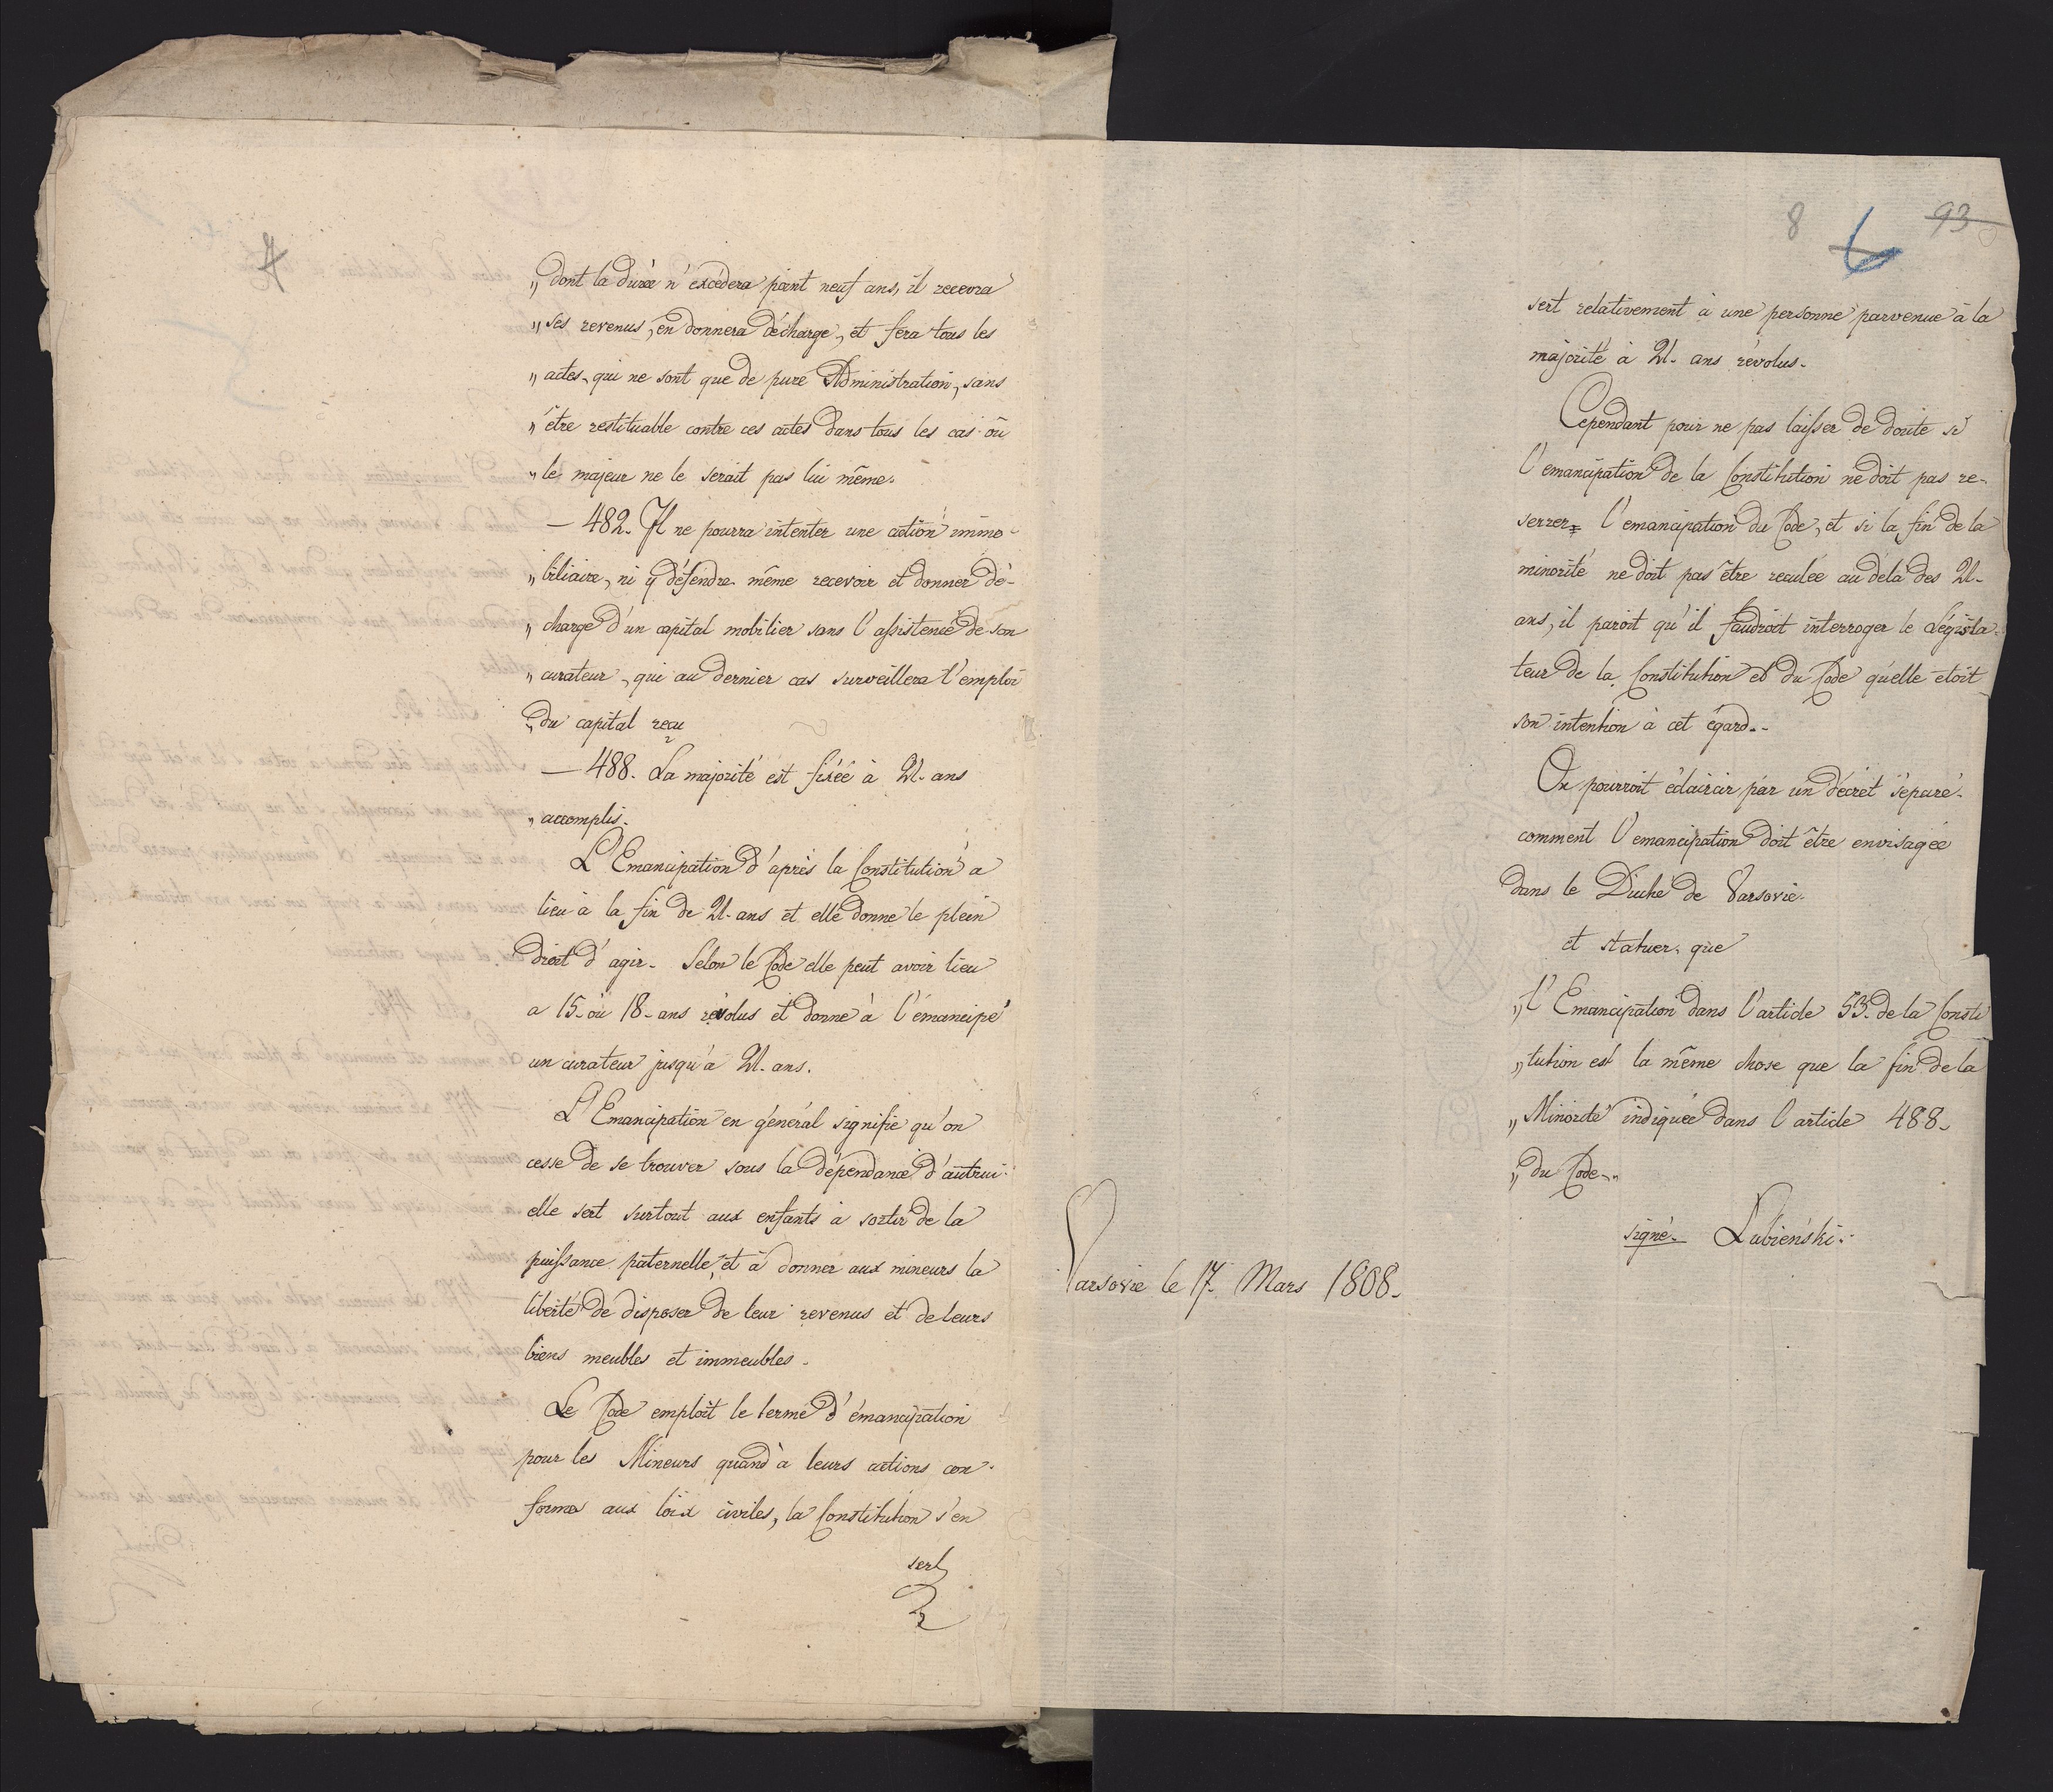 4
„dont la durée n'excédera point neuf ans, il recevra
„ses revenus, en donnera décharge, et fera tous les
„actes, qui ne sont que de pure Administration, sans
„être restituable contre ces actes dans tous les cas où
„le majeur ne le serait pas lui même.
— 482. Il ne pourra intenter une action immo-
„biliaire, ni y défendre même recevoir et donner dé-
„charge d'un capital mobilier sans l'assistence de son
„curateur, qui au dernier cas surveillera l'emploi
„du capital reçu
— 488. La majorité est fixée à 21. ans
„accomplis.
L'Emancipation d'après la Constitution a
lieu à la fin de 21. ans et elle donne le plein
droit d'agir. Selon le Code elle peut avoir lieu
a 15. où 18. ans révolus et donne à l'émancipé
un curateur jusqu'à 21. ans.
L'Emancipation en général signifie qu'on
cesse de se trouver sous la dépendance d'autrui.
elle sert surtout aux enfants à sortir de la
puissance paternelle, et à donner aux mineurs la
liberté de disposer de leur revenus et de leurs
biens meubles et immeubles.
Le Code emploit le terme d'émancipation
pour les Mineurs quand à leurs actions con-
formes aux loix civiles, la Constitution s'en
sert
8 6 93
sert relativement à une personne parvenue à la
majorité à 21. ans révolus.
Cependant pour ne pas laisser de doute si
l'emancipation de la Constitution ne doit pas re-
serrer l'emancipation du Code, et si la fin de la
minorité ne doit pas être reculée au delà des 21.
ans, il paroit qu'il faudroit interroger le Législa-
teur de la Constitution et du Code qu'elle étoit
son intention à cet égard..
On pourroit éclaircir par un décret séparé.
comment l'emancipation doit être envisagée
dans le Duché de Varsovie.
et statuer, que
„l'Emancipation dans l'article 53. de la Consti
„tution est la même chose que la fin de la
„Minorité indiquée dans l'article 488.
„du Code.„
signé. Lubieński.
Varsovie le 17. Mars 1808.